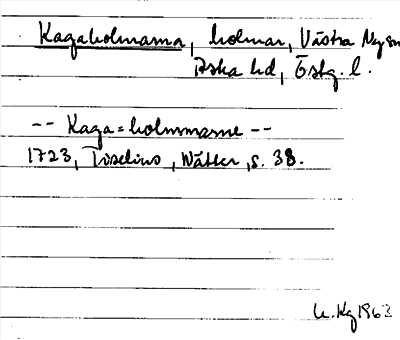 Kagaholmarna, holmar, Västra Ny sn
Aska hd, Östg. l.
-- Kaga=holmmarne --
1723, Tiselius, Wätter, s. 38.
1962